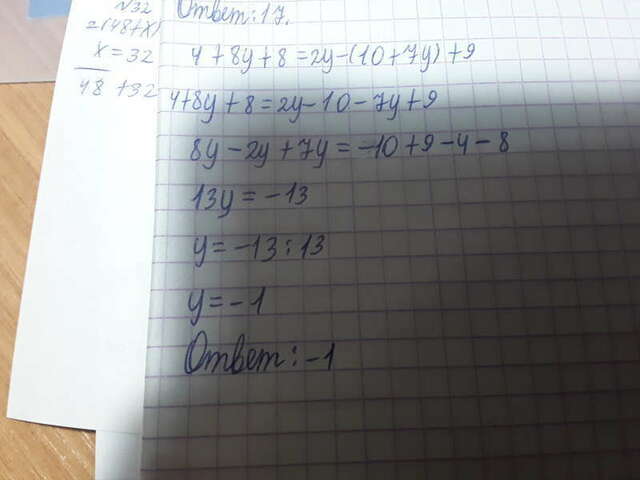 N32
=(48+x)
x=32
48+32
Ответ: 17.
4+8y+8=2y-(10+7y)+9
4+8y+8=2y-10-7y+9
8y-2y+7y=-10+9-4-8
13y=-13
y=-13:13
y=-1
Ответ: -1